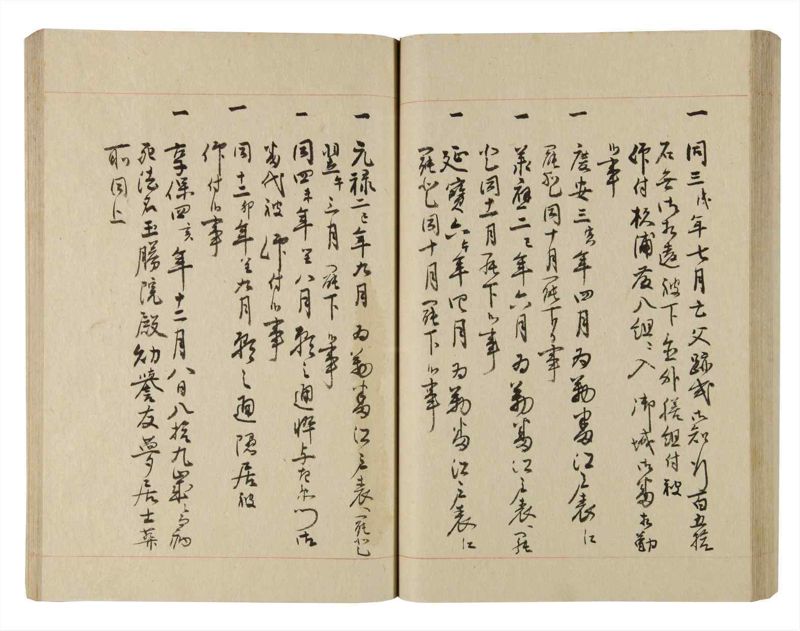 一 同三戌年七月亡父跡式御知行百五拾
石無御相違被下置外膳組付被
仰付杉浦藤八組ニ入 御城御番相勤
候事
一 慶安三寅年四月為勤番江戸表江
罷登同十月罷下候事
一 承応二巳年六月為勤番江戸表江罷
登同十一月罷下候事
一 延宝六午年四月為勤番江戸表江
罷登同十月罷下候事
一 元禄二巳年九月為勤番江戸表江罷登
翌午三月罷下候事
一 同四未年八月願之通悴与左衛門御
番代被 仰付候事
一 同十二卯年九月願之通隠居被
仰付候事
一 享保四亥年十二月八日八拾九歳ニ而病
死法名玉勝院殿幼誉友夢居士葬
所同上